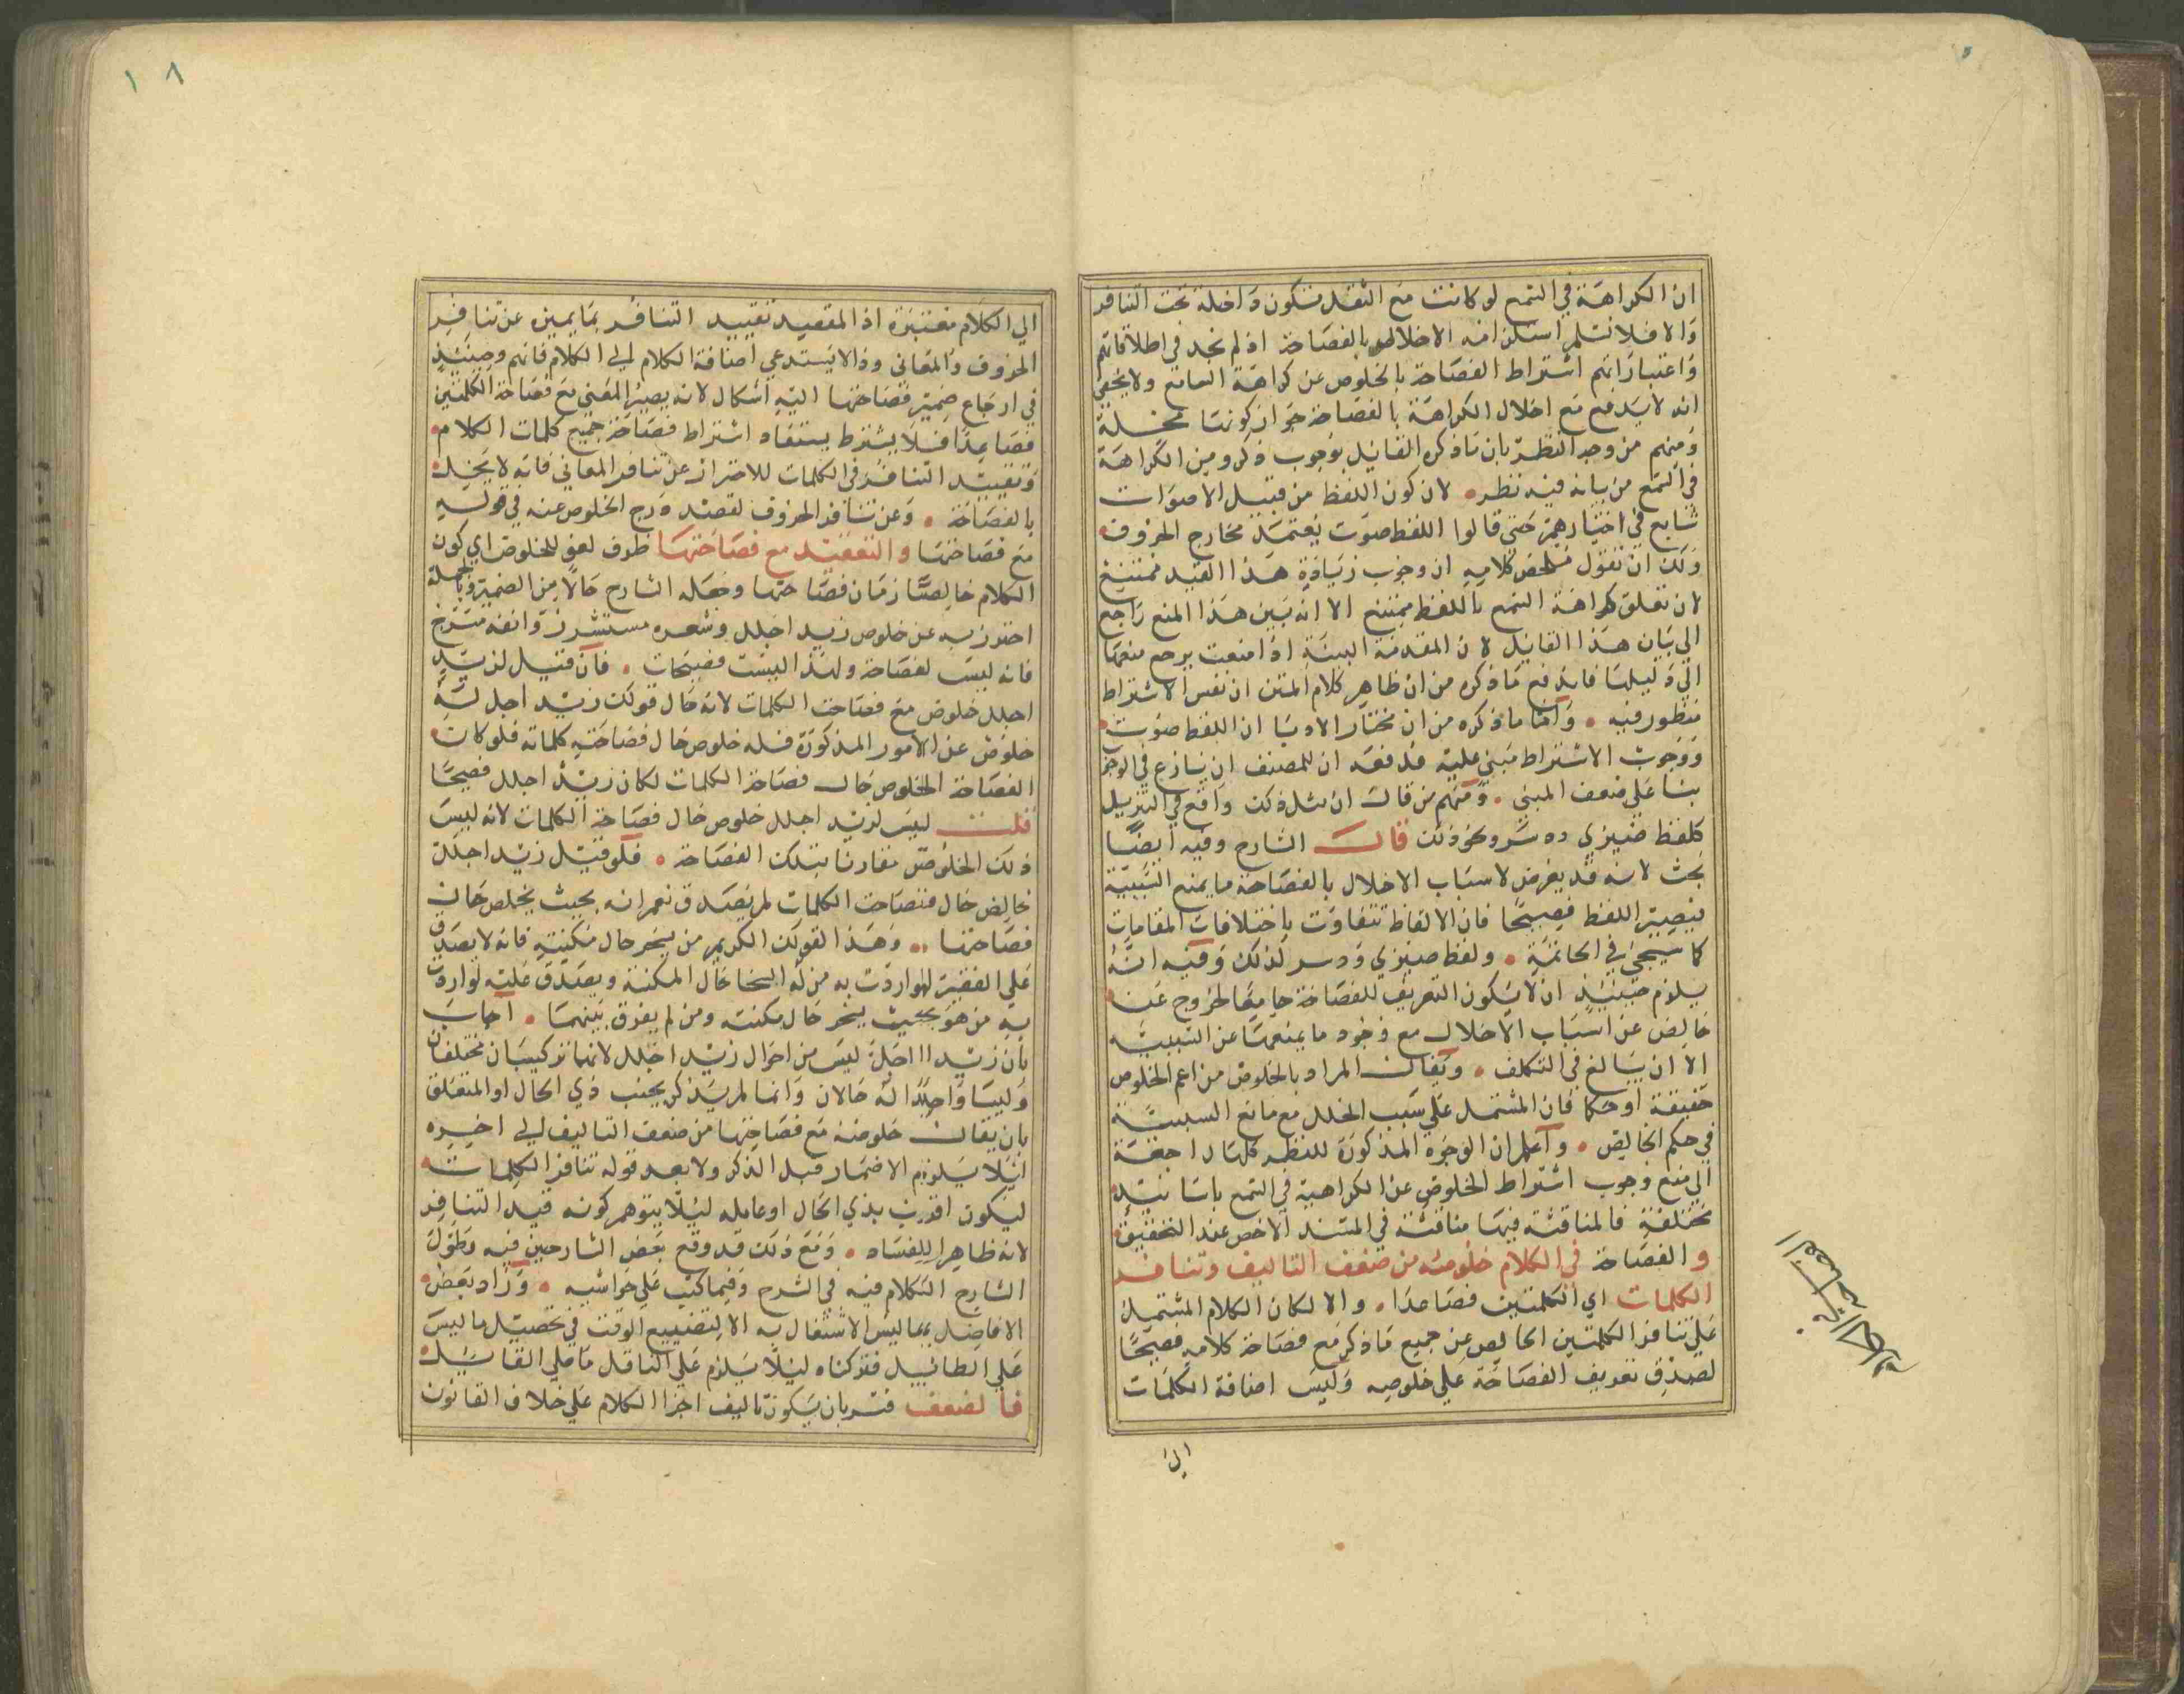 ان الكراهة في السمع لو كانت مع الثقل فتكون داخلة تحت التنافر
والا فلا نسلم استلزامه الاخلال بالفصاحة اذ لم نجد في اطلاقاتهم
واعتباراتهم اشتراط الفصاحة بالخلوص عن كراهة السامع ولا يخفى
انه لا يندفع منع اخلال الكراهة بالفصاحة جواز كونها مخلة
ومنهم من وجه النظر بان ما ذكره القايل بوجوب ذكر ومن الكراهة
في السمع من بيانه فيه نظر لان كون اللفظ من قبيل الاصوات
شايع في اختيارهم حتى قالوا اللفظ صوت يعتمد مخارج الحروف
ولك ان تقول ملخص كلامه ان وجوب زيادة هذا القيد ممتنع
لان تعلق كراهة السمع باللفظ ممتنع الا انه بين هذا المنع راجع
الي بيان هذا القايل لان المقدمة البينة اذا منعت يرجع منعها
الي دليلها فاندفع ما ذكره من ان ظاهر كلام المتن ان نفس الاشتراط
منظور فيه واما ما ذكره من ان مختار الادبا ان اللفظ صوت
ووجوب الاشتراط مبني عليه فدفعه ان للمصنف ان ينازع في الوجوب
بنا علي ضعف المبني ومنهم من قال ان مثل ذلك واقع في التنزيل
كلفظ ضيزي ودسر ونحو ذلك قال الشارح وفيه ايضا
بحث لانه قد يعرض لاسباب الاخلال بالفصاحة ما يمنع السببية
فيصير اللفظ فصيحا فان الالفاظ تتفاوت باختلافات المقامات
كما سيجئ في الخاتمة ولفظ ضيزي ودسر كذلك وفيه انه
يلزم حينئذ ان لا يكون التعريف للفصاحة جامعا لخروج عنه
خالص عن اسباب الاخلال مع وجود ما يمنعها عن السببية
الا ان يبالغ في التكلف ويقال المراد بالخلوص من اعم الخلوص
حقيقة او حكما فان المشتمل علي سبب الخلل مع مانع السببية
في حكم الخالص واعلم ان الوجوه المذكورة للنظر كلها راجعة
الي منع وجوب اشتراط الخلوص عن الكراهية في السمع باسانيد
مختلفة فالمناقشة فيها مناقشة في السند الاخص عند التحقيق
و الفصاحة في الكلام خلوصه من ضعف التاليف وتنافر
الكلمات اي الكلمتين فصاعدا والا لكان الكلام المشتمل
علي تنافر الكلمتين الخالص عن جميع ما ذكر مع فصاحة كلامه فصيحا
لصدق تعريف الفصاحة علي خلوصه وليس اضافة الكلمات
الي
الي الكلام معتبرة اذ المقصيد تقييد التنافر بما يميزه عن تنافر
الحروف والمعاني وذا لا يستدعي اضافة الكلام الي الكلام فافهم وحينئذ
في ارجاع ضمير فصاحتها اليه اشكال لانه يصير المعني مع فصاحة الكلمتين
فصاعدا فلا يشترط يستفاد اشتراط فصاحة جميع كلمات الكلام
وتقييد التنافر في الكلمات للاحتراز عن تنافر المعاني فانه لا يخل
بالفصاحة وعن تنافر الحروف لقصد درج الخلوص عنه في قوله
مع فصاحتها والتعقيد مع فصاحتها ظرف لغو للخلوص اي كون
الكلام خالصا زمان فصاحتها وجعله الشارح حالا من الضمير وبالجملة
احترز به عن خلوص زيد اجلل وشعره مستشزر وانفه مسرج
فانه ليس لفصاحة ولهذا ليست فصيحات فان قيل لزيد
اجلل خلوص مع فصاحة الكلمات لانه حال قولك زيد اجل له
خلوص عن الامور المذكورة فله خلوص حال فصاحته كلماته فلو كانت
الفصاحة الخلوص حال فصاحة الكلمات لكان زيد اجلل فصيحا
قلت ليس لزيد اجلل خلوص حال فصاحة الكلمات لانه ليس
ذلك الخلوص مقارنا بتلك الفصاحة فلو قيل زيد اجلل
خالص حال فصاحة الكلمات لم يصدق نعم انه بحيث يخلص حال
فصاحتها وهذا كقولك الكريم من ينحر حال مكنته فانه لا يصدق
علي الفقير لو اردت به من له السخا حال المكنة ويصدق عليه لو اردت
به من هو بحيث ينحر حال مكنته ومن لم يفرق بينهما اجاب
بان زيد ا اجل ليس من احوال زيد اجلل لانهما تركيبان مختلفان
وليسا واحدا له حالان وانما لم يذكر بجنب ذي الحال او المتعلق
بان يقال خلوصه مع فصاحتها من ضعف التاليف الي اخره
ليلا يلزم الاضمار قبل الذكر ولا بعد قوله تنافر الكلمات
ليكون اقرب بذي الحال او عامله ليلا يتوهم كونه قيد التنافر
لانه ظاهر الفساد ومع ذلك قد وقع بعض الشارحين فيه وطول
الشارح الكلام فيه في الشرح وفيما كتب علي حواشيه وزاد بعض
الافاضل بما ليس الاشتغال به الا لتضييع الوقت في تحصيل ما ليس
علي الطائيل فتركناه ليلا يلزم علي الناقل ما علي القائيل
فالضعف فسر بان يكون تاليف اجزا الكلام علي خلاف القانون
١٨